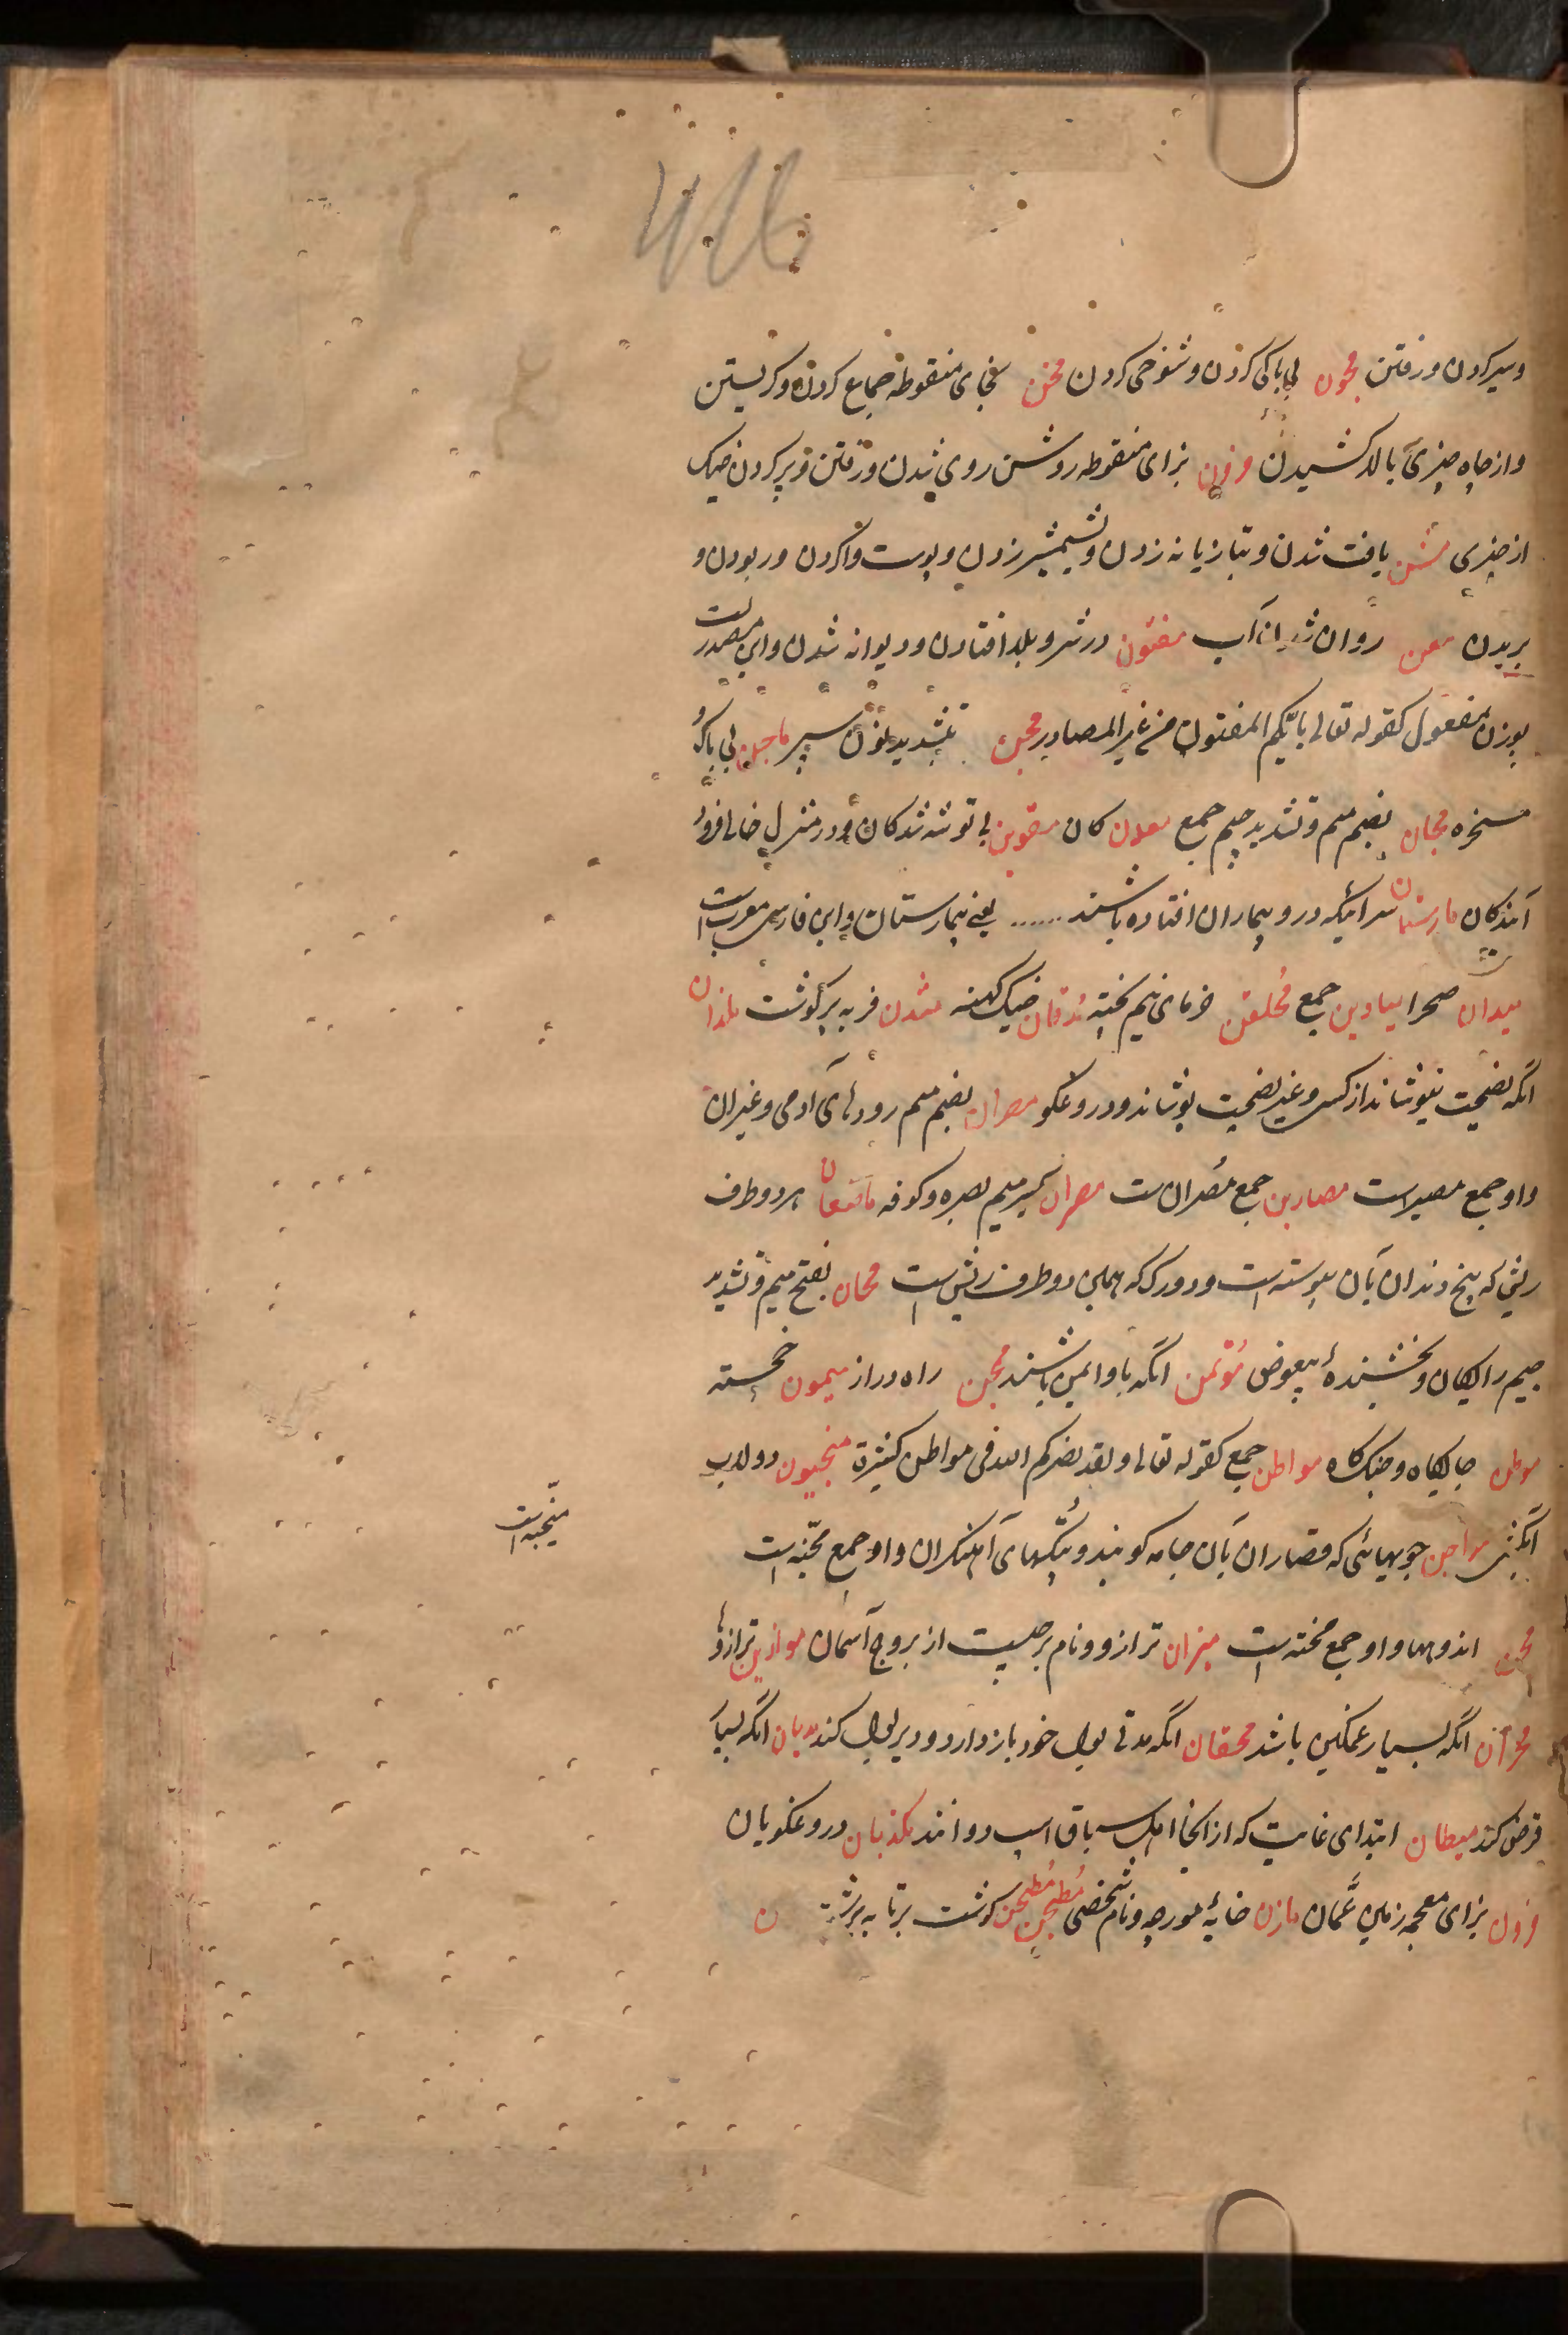 وسیر کردن و رفتن مجون بی باکی کردن و شوخی کردن مخن بخای منقوطه جماع کردن و کریستن
و از چاه چیزی بالا کشیدن مزن بزای منقوطه روشن روی شدن و رفتن و پر کردن خیک
از چیزی مشن یافت شدن و بتازیانه زدن و بشمشیر زدن و پوست وا کردن و ربودن و
بریدن معن روان شدن آب مفتون در شر و بلا افتادن و دیوانه شدن و این مصدرست
بوزن مفعول کقوله تعالی بایکم المفتون من غیر المصادر مجن بتشدید نون سپر ماجن بی باک و
مسخره مجان بضم میم و تشدید جیم جمع معدن کان مقوین بی توشه شدکان و در منزل خالی فرود
آمدکان مارستان سرائیکه درو بیماران افتاده باشند ...... یعنی بیمارستان و این فارسی معربست
میدان صحرا میادین جمع محلقن خرمای نیم پخته مدقان خیک کهنه مشدن فربه پر کوشت ملذان
آنکه نصیحت بنیوشاند از کس و غیر نصیحت پوشاند و دروغکو مصران بضم میم رودهای آدمی و غیر آن
و او جمع مصیرست مصارین جمع مصران ست مصران بکسر میم بصره و کوفه ماضغان هر دو طرف
ریش که بیخ دندان بآن پیوسته است و دو رک که بمیان دو طرف ریش است مجان بفتح میم و تشدید
جیم رایکان و بخشندۀ بیعوض مؤتمن آنکه باو ایمن باشند مجن راه دراز میمون خجسته
موطن جایکاه و جنک کاه مواطن جمع کقوله تعالی و لقد نصرکم الله فی مواطن کثیرة منجنون دولاب
آبکش مواجن چوبهائی که قصاران بآن جامه کوبند و پتکهای آهنکران و او جمع مجنه است
منجنه است
محن اندوهها و او جمع محنه است میزان ترازو و نام برجیست از بروج آسمان موازین ترازوها
محزان آنکه بسیار غمکین باشد محقان آنکه مدتی بول خود باز دارد و دیر بول کند مدیان آنکه بسیار
قرض کند میطان ابتدای غایت که از آنجا اهل سباق اسپ دوانند مکذبان دروغکویان
مزون بزای معجمه زمین عمان مازن خایۀ مورچه و نام شخصی مطجن مطیجن کوشت برتابه برشته ن